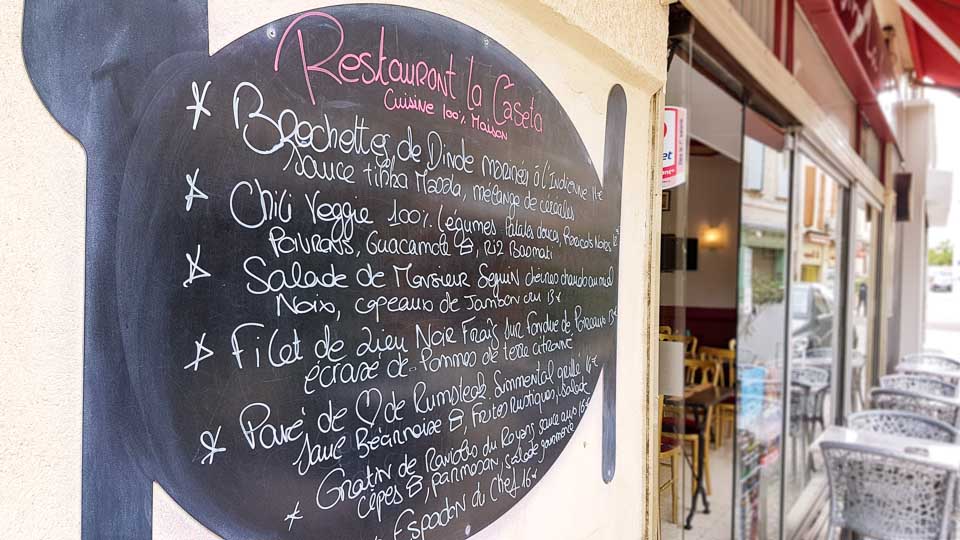 Restaurant la Caseta
Cuisine 100% Maison
Brochettes de Dinde marinées à l'Indienne
Sauce tikka Masala, mélange de céréales
Chili Veggie 100% légumes Patates douces, Haricots Noirs
Poivrons, Guacamole, Riz Basmati
Salade de Monsieur Seguin chèvres chauds au miel
Noix, copeaux de Jambon cru 13€
Filet de Lieu Noir Frais sur fondue de Poireaux
écrasé de Pommes de terre citronné
Pavé de ♡ de Rumsteak Simmental grillé
Sauce Béarnaise, Frites Rustiques, Salade
Gratin de Ravioles du Royans sauce aux
cèpes, parmesan, Salade gourmande
Espadon du Chef 16€